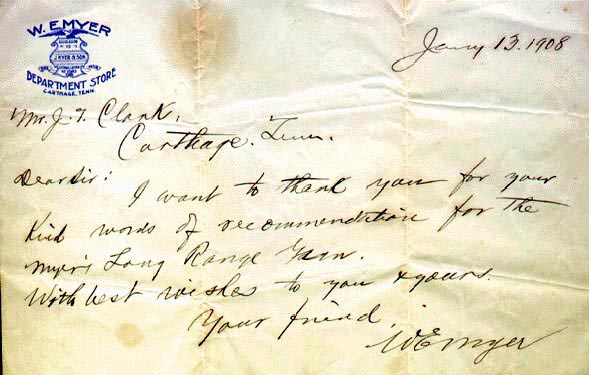 W. E. MYER
SUCCESSOR
TO
J. MYER & SON
DEPARTMENT STORE
CARTHAGE, TENN.
Jany 13. 1908
Mr. J. T. Clark,
Carthage. Tenn.
Dear Sir:
I want to thank you for your
Kind words of recommendation for the
Myer's Long Range Gun.
With best wishes to you & yours.
Your friend,
W E Myer